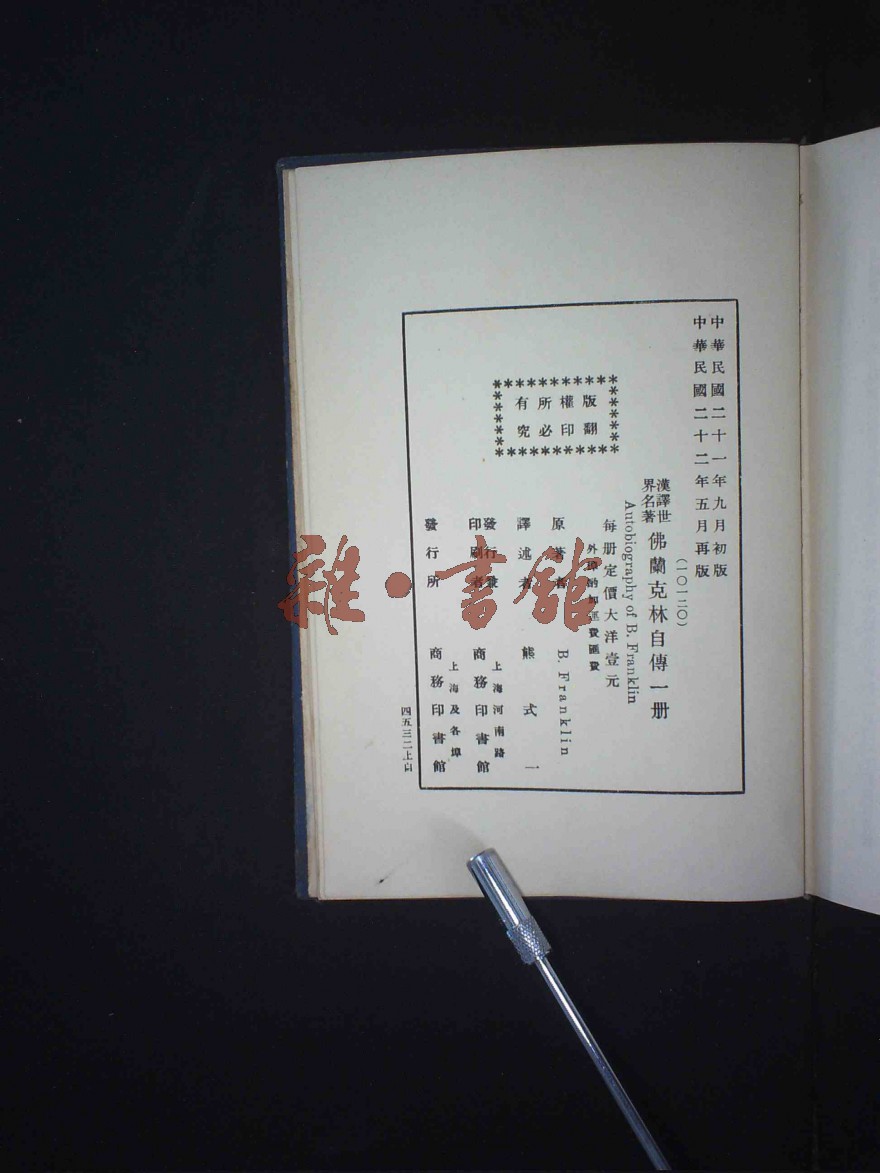 中華民國二十一年九月初版
中華民國二十二年五月再版
(一〇一二〇)
漢譯世界名著
佛蘭克林自傳一册
Autobiography of B. Franklin
每册定價大洋壹元
外埠酌加運費匯費
版權所有
翻印必究
原著者 B. Franklin
譯述者 熊式一
發行兼印刷者
上海河南路
商務印書館
發行所
上海及各埠
商務印書館
四五三二上
雜·書館